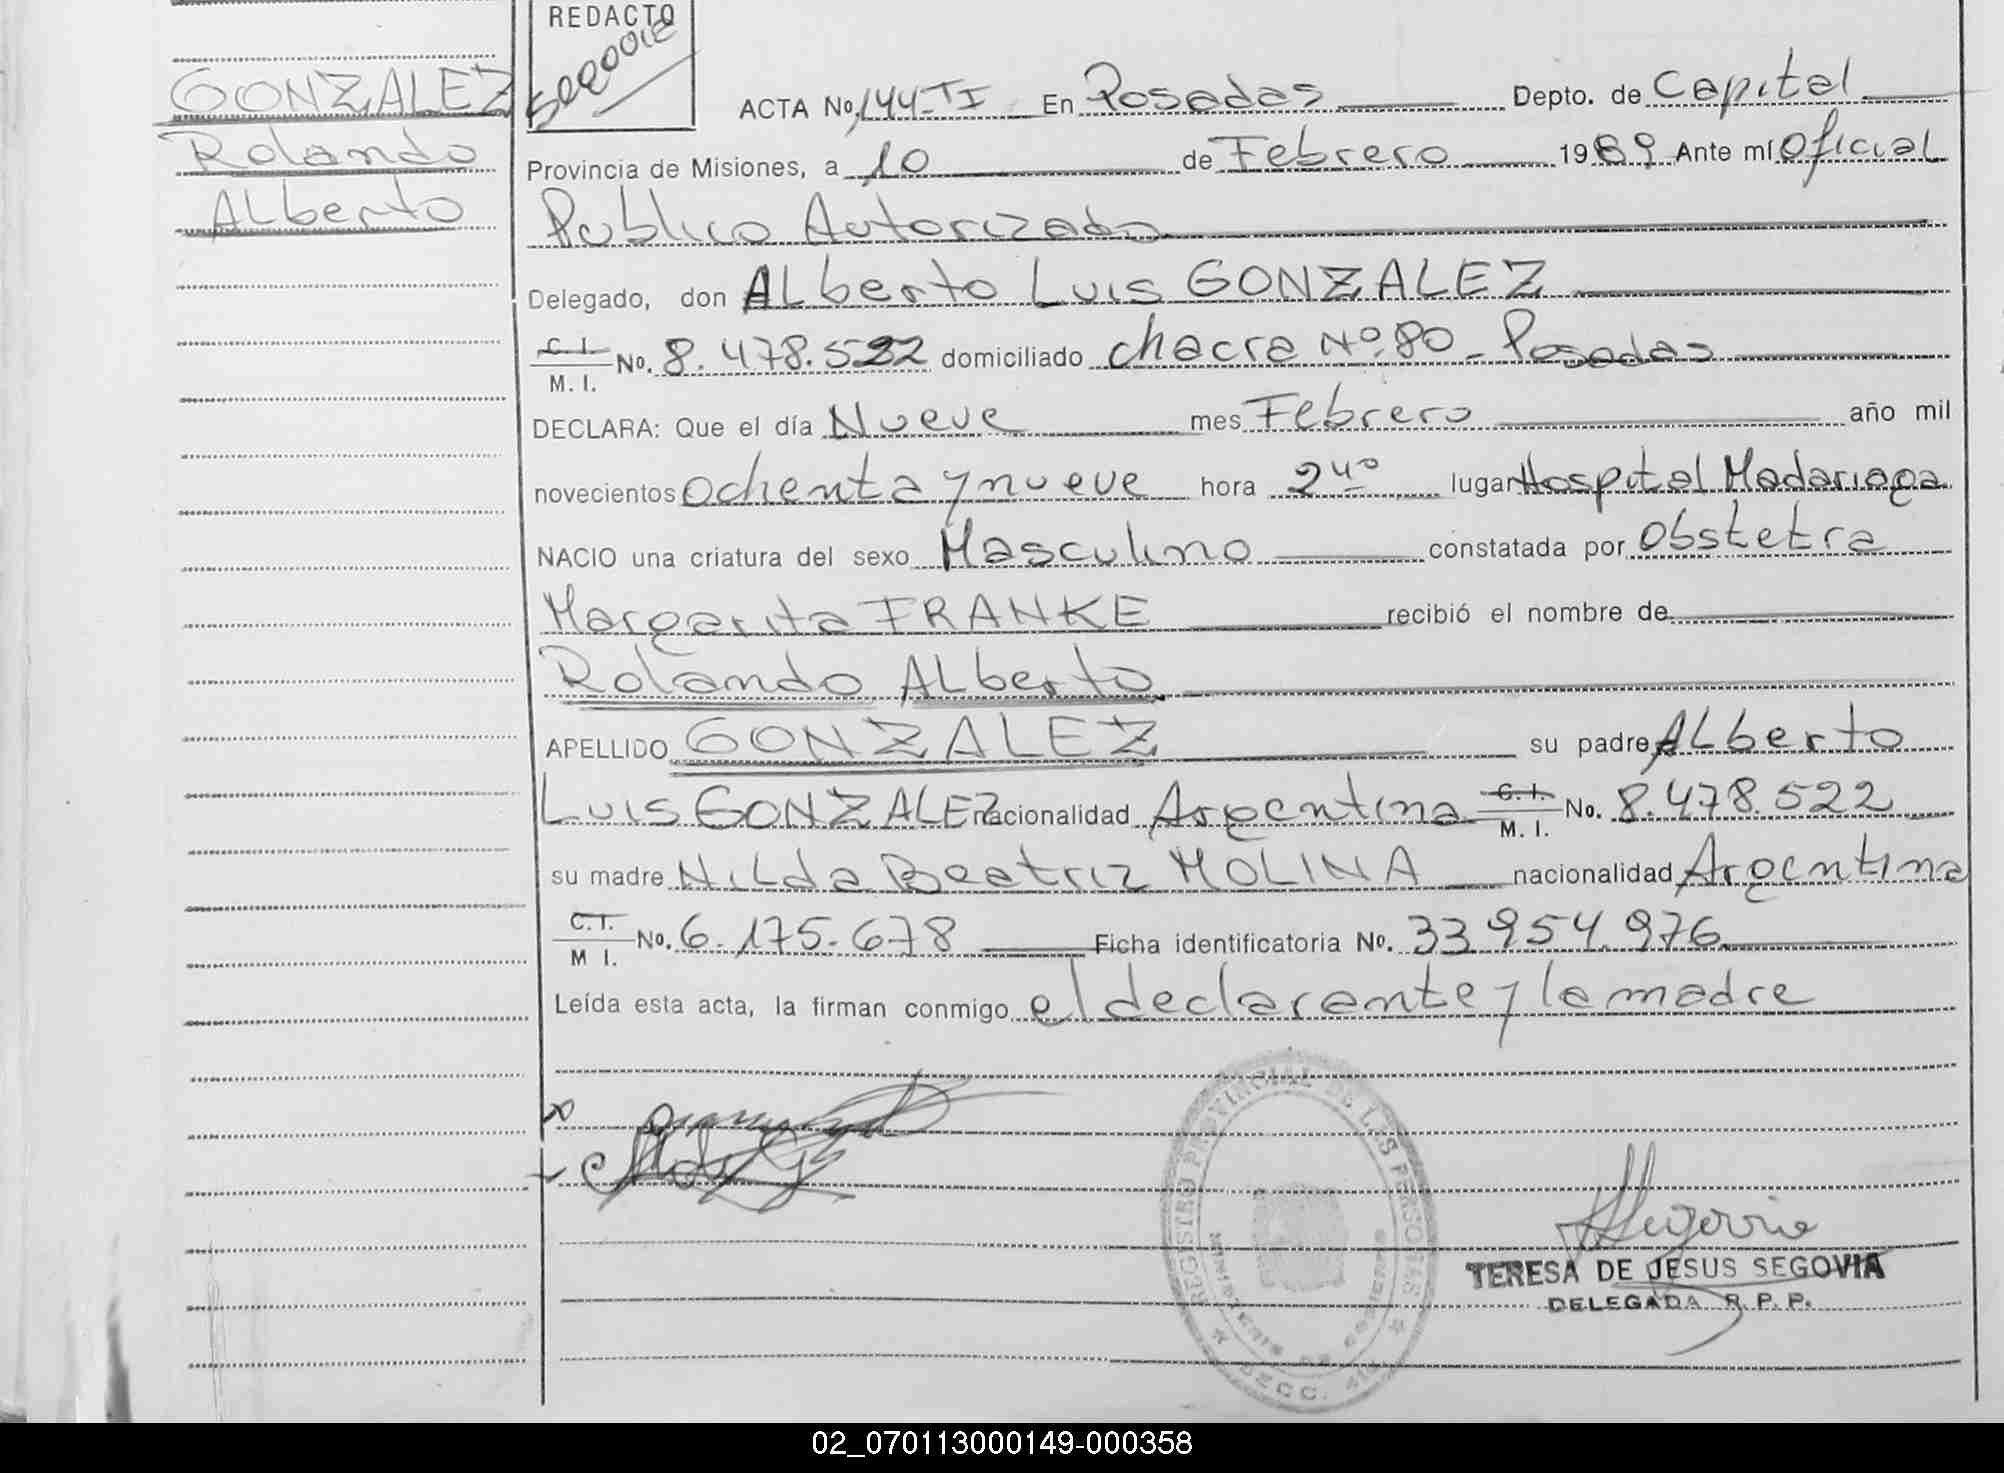 REDACTO
GONZALEZ
Rolando
Alberto
ACTA No. 144-TI En Posadas Depto. de Capital
Provincia de Misiones, a 10 de Febrero 1989 Ante mí Oficial
Publico Autorizado
Delegado, don Alberto Luis GONZALEZ
C. I. M. I. No. 8.478.522 domiciliado chacra Nº 80 - Posadas
DECLARA: Que el día Nueve mes Febrero año mil
novecientos ochenta y nueve hora 2 40 lugar Hospital Madariaga
NACIO una criatura del sexo Masculino constatada por Obstetra
Margarita FRANKE recibió el nombre de
Rolando Alberto
APELLIDO GONZALEZ su padre Alberto
Luis GONZALEZ nacionalidad Argentina C. I. M. I. No. 8.478.522
su madre Nilda Beatriz MOLINA nacionalidad Argentina
C. I. M I. No. 6.175.678 Ficha identificatoria No. 33954976
Leída esta acta, la firman conmigo el declarante y la madre
REGISTRO PROVINCIAL DE LAS PERSONAS
MINISTERIO DE GOBIERNO
Segovia
TERESA DE JESUS SEGOVIA
DELEGADA R. P. P.
02_070113000149-000358